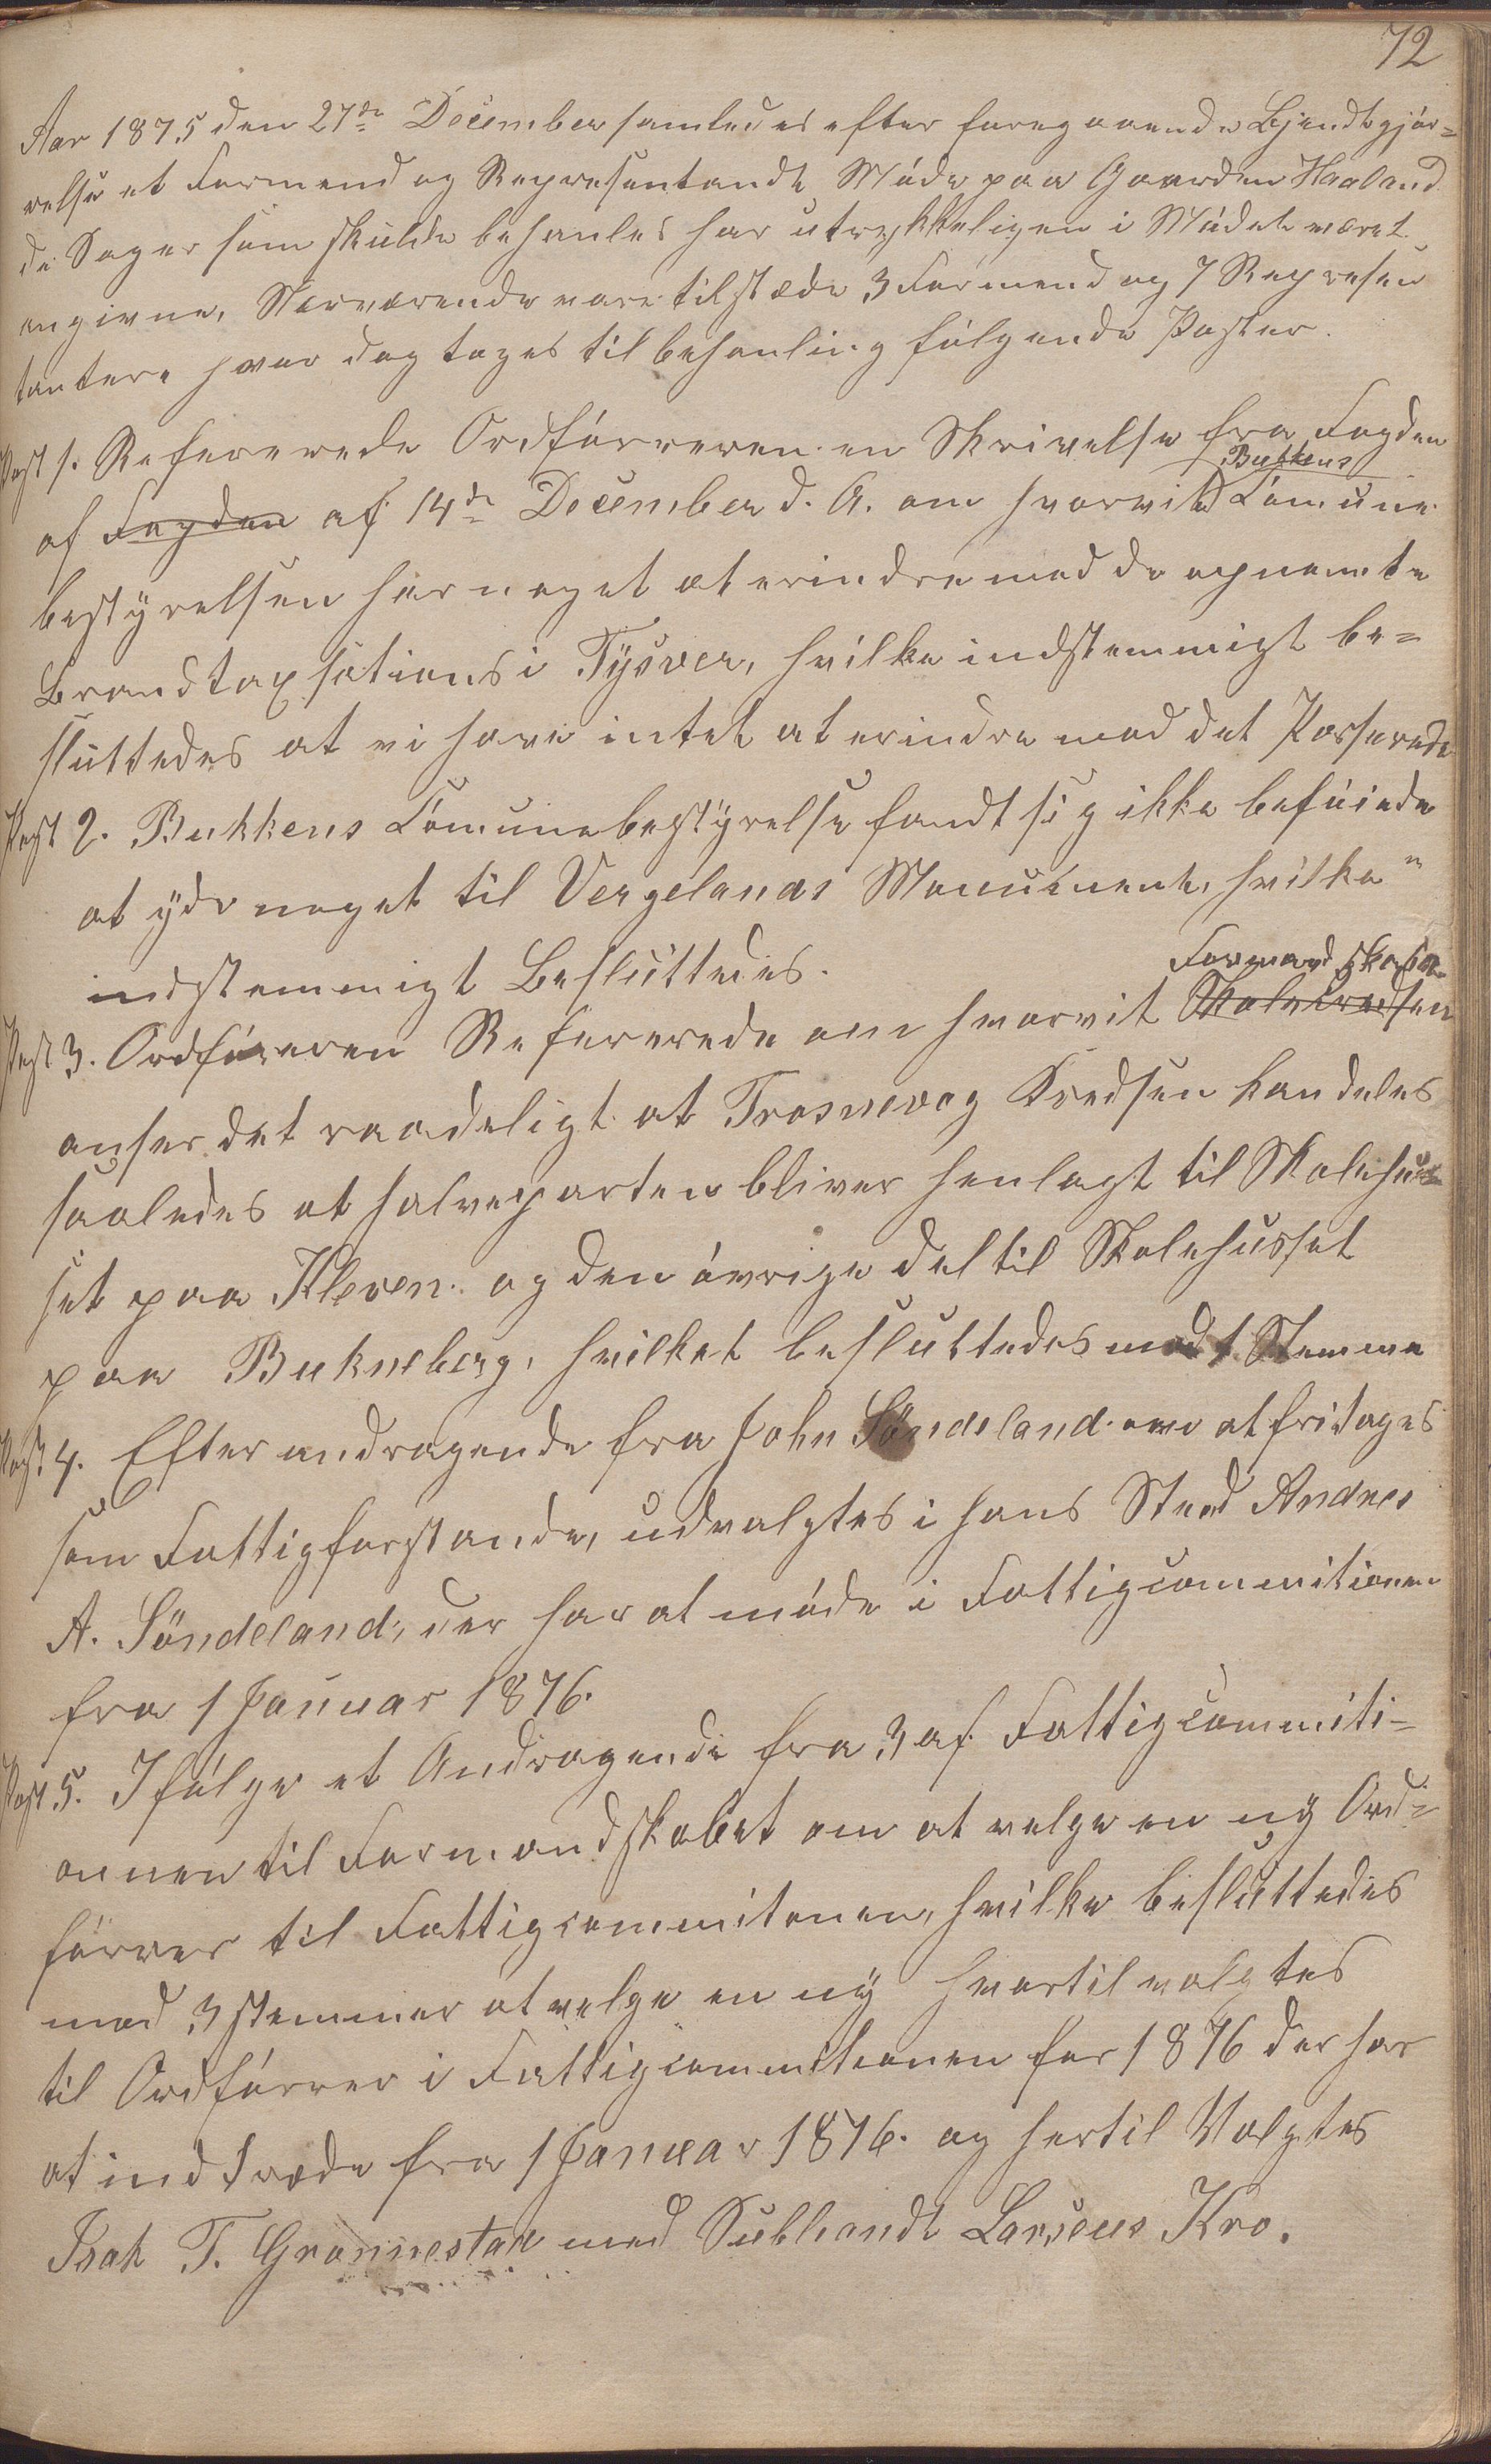 72
Aar 1875 den 27de December samledes efter foregaaende Bjendtgjør=
relse et Formend og Representandt Møde paa Gaarden Haaland
de Sager som skulde behanles har utrykkeligen i Mødet været
angivne, Nærværende vare tilstæde 3 Formend og 7 Represen
tantere hvor dog toges til behanling følgende Poster.
Post 1. Refererede Ordførreren en Skrivelse fra Fogden
Bukkens
af Fogden af 14de December d. A. om hvorvit Comune
bestyrelsen har noget at erindre mod de opnemte
Brandtaxsations i Tysver, hvilke indstemmigt be=
sluttedes at vi have intet at erindre mod det Passerede
Post 2. Bukkens Comunebestyrelse fandt sig ikke beføiede
at yde noget til Vergelands Monument, hvilke
indstemmigt Besluttedes.
Formandskabe
Post 3. Ordføreren Refererede om hvorvit Skolekredsen
anser det raadeligt at Trosnevog Kredsen kan deles
saaledes at halveparten bliver henlagt til Skolehus
set paa Kleven og den øvrige del til Skolehusset
paa Bukneberg, hvilket besluttedes mod 1 Stemme
Post 4. Efter andragende fra John Søndeland om at fritages
som Fattigforstande, udvalgtes i hans Sted Andres
A. Söndeland, der har at møde i Fattigcommitionen
fra 1 Januar 1876.
Post 5. Ifølge et Andragende fra 3 af Fattigcommiti=
onnen til Formandskabet om at velge en ny Ord=
fører til Fattigcommitonen, hvilke besluttedes
mod 3 stemmer at velge en ny hvortil valgtes
til Ordførrer i Fattigcommitionen for 1876 der har
at indtræde fra 1 Januar 1876. og hertil Valgtes
Isak T. Grønnestad med Subliandt Larsens Kro.